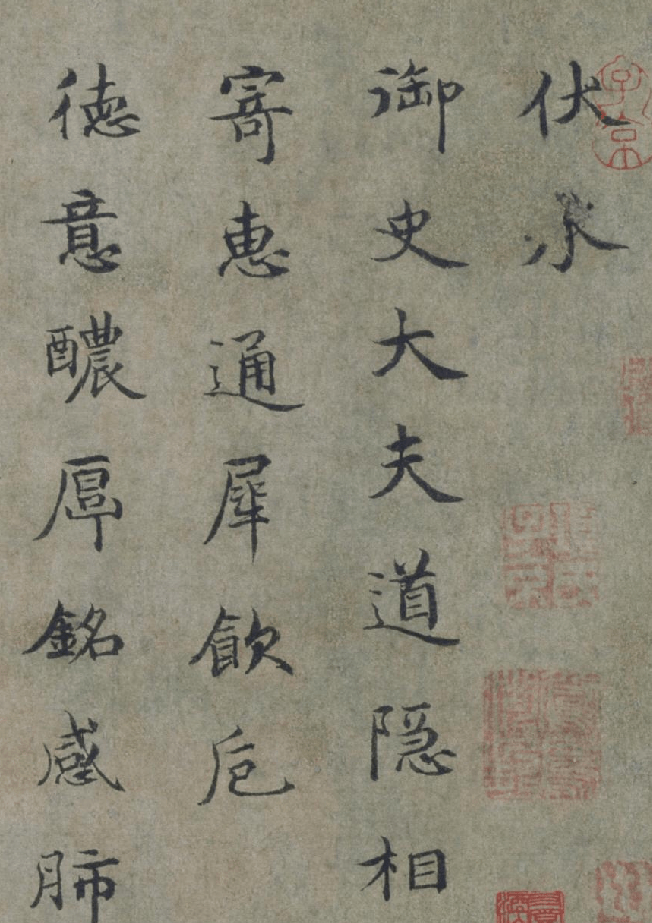 伏承
御史大夫道隐相
寄惠通犀飲卮
德意醲厚銘感肺